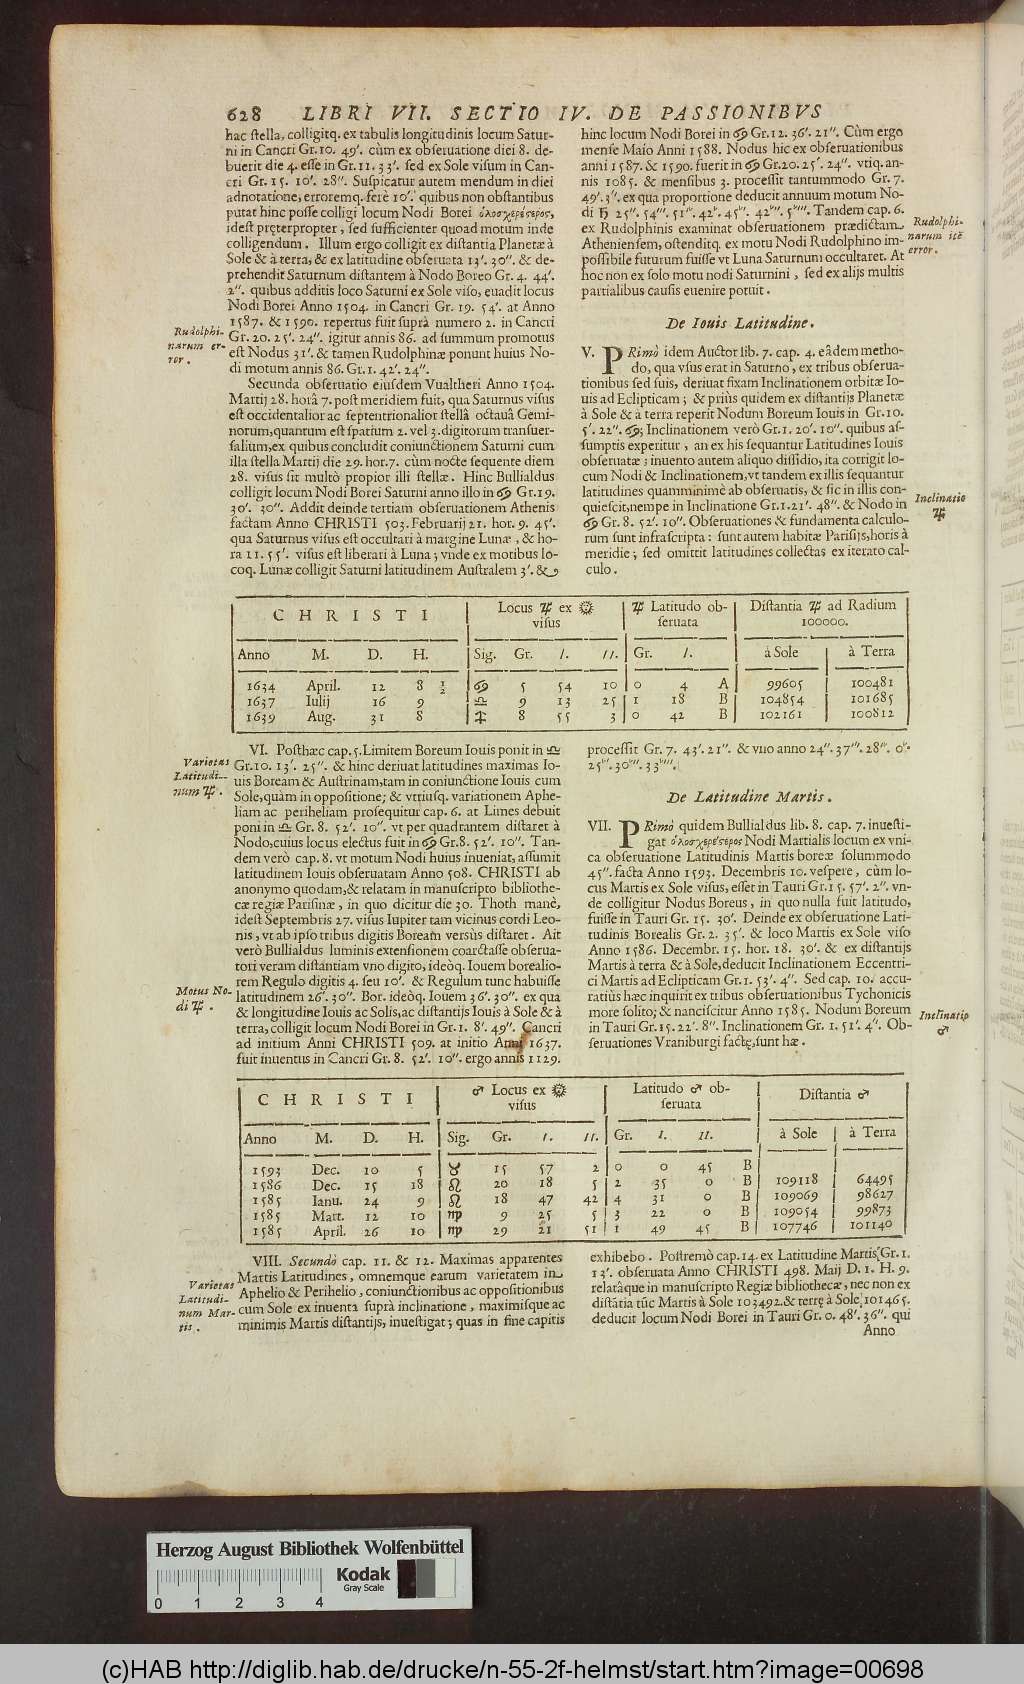 628 LIBRI VII. SECTIO IV. DE PASSIONIBVS
hac ſtella, colligitq. ex tabulis longitudinis locum Satur-
ni in Cancri Gr. 10. 49′. cùm ex obſeruatione diei 8. de-
buerit die 4. eſſe in Gr. 11. 33′. ſed ex Sole viſum in Can-
cri Gr. 15. 10′. 28″. Suſpicatur autem mendum in diei
adnotatione, erroremq. ferè 10′. quibus non obſtantibus
putat hinc poſſe colligi locum Nodi Borei
ideſt pręterpropter, ſed ſufficienter quoad motum inde
colligendum. Illum ergo colligit ex diſtantia Planetæ à
Sole & à terra, & ex latitudine obſeruata 13′. 30″. & de-
prehendit Saturnum diſtantem à Nodo Boreo Gr. 4. 44′.
2″. quibus additis loco Saturni ex Sole viſo, euadit locus
Nodi Borei Anno 1504. in Cancri Gr. 19. 54′. at Anno
1587. & 1590. repertus fuit ſuprà numero 2. in Cancri
Gr. 20. 25′. 24″. igitur annis 86. ad ſummum promotus
eſt Nodus 31′. & tamen Rudolphinæ ponunt huius No-
di motum annis 86. Gr. 1. 42′. 24″.
Rudolphi-
narum er-
ror.
Secunda obſeruatio eiuſdem Vualtheri Anno 1504.
Martij 28. horâ 7. poſt meridiem fuit, qua Saturnus viſus
eſt occidentalior ac ſeptentrionalior ſtellâ octauâ Gemi-
norum, quantum eſt ſpatium 2. vel 3. digitorum tranſuer-
ſalium, ex quibus concludit coniunctionem Saturni cum
illa ſtella Martij die 29. hor. 7. cùm nocte ſequente diem
28. viſus ſit multò propior illi ſtellæ. Hinc Bullialdus
colligit locum Nodi Borei Saturni anno illo in ♋ Gr. 19.
30′. 30″. Addit deinde tertiam obſeruationem Athenis
factam Anno CHRISTI 503. Februarij 21. hor. 9. 45′.
qua Saturnus viſus eſt occultari à margine Lunæ, & ho-
ra 11. 55′. viſus eſt liberari à Luna; vnde ex motibus lo-
coq. Lunæ colligit Saturni latitudinem Auſtralem 3′. &
hinc locum Nodi Borei in ♋ Gr. 12. 36′. 21″. Cùm ergo
menſe Maio Anni 1588. Nodus hic ex obſeruationibus
anni 1587. & 1590. fuerit in ♋ Gr. 20. 25′. 24″. vtiq. an-
nis 1085. & menſibus 3. proceſſit tantummodo Gr. 7.
49′. 3″. ex qua proportione deducit annuum motum No-
di ♄ 25″. 54‴. 51⁗. 42. 45. 42. 5. Tandem cap. 6.
ex Rudolphinis examinat obſeruationem prædictam
Athenienſem, oſtenditq. ex motu Nodi Rudolphino im-
poſſibile futurum fuiſſe vt Luna Saturnum occultaret. At
hoc non ex ſolo motu nodi Saturnini, ſed ex alijs multis
partialibus cauſis euenire potuit.
Rudolphi-
narum itẽ
error.
De Iouis Latitudine.
V. PRimò idem Auctor lib. 7. cap. 4. eâdem metho-
do, qua vſus erat in Saturno, ex tribus obſerua-
tionibus ſed ſuis, deriuat fixam Inclinationem orbitæ Io-
uis ad Eclipticam; & priùs quidem ex diſtantijs Planetæ
à Sole & à terra reperit Nodum Boreum Iouis in Gr. 10.
5′. 22″. ♋; Inclinationem verò Gr. 1. 20′. 10″. quibus aſ-
ſumptis experitur, an ex his ſequantur Latitudines Iouis
obſeruatæ; inuento autem aliquo diſſidio, ita corrigit lo-
cum Nodi & Inclinationem, vt tandem ex illis ſequantur
latitudines quamminimè ab obſeruatis, & ſic in illis con-
quieſcit, nempe in Inclinatione Gr. 1. 21′. 48″. & Nodo in
♋ Gr. 8. 52′. 10″. Obſeruationes & fundamenta calculo-
rum ſunt infraſcripta: ſunt autem habitæ Pariſijs, horis à
meridie; ſed omittit latitudines collectas ex iterato cal-
culo.
Inclinatio
♃
CHRISTI | Locus ♃ ex ☼ viſus | ♃ Latitudo ob-ſeruata | Diſtantia ♃ ad Radium 100000.
Anno M. D. H. | Sig. Gr. I. II. | Gr. I. | à Sole | à Terra
1634 April. 12 8 ½ | ♋ 5 54 10 | 0 4 A | 99605 | 100481
1637 Iulij 16 9 | ♎ 9 13 25 | 1 18 B | 104854 | 101685
1639 Aug. 31 8 | ♐ 8 55 3 | 0 42 B | 102161 | 100812
VI. Poſthæc cap. 5. Limitem Boreum Iouis ponit in ♎
Gr. 10. 13′. 25″. & hinc deriuat latitudines maximas Io-
uis Boream & Auſtrinam, tam in coniunctione Iouis cum
Sole, quàm in oppoſitione; & vtriuſq. variationem Aphe-
liam ac periheliam proſequitur cap. 6. at Limes debuit
poni in ♎ Gr. 8. 52′. 10″. vt per quadrantem diſtaret à
Nodo, cuius locus electus fuit in ♋ Gr. 8. 52′. 10″. Tan-
dem verò cap. 8. vt motum Nodi huius inueniat, aſſumit
latitudinem Iouis obſeruatam Anno 508. CHRISTI ab
anonymo quodam, & relatam in manuſcripto bibliothe-
cæ regiæ Pariſinæ, in quo dicitur die 30. Thoth manè,
ideſt Septembris 27. viſus Iupiter tam vicinus cordi Leo-
nis, vt ab ipſo tribus digitis Boream versùs diſtaret. Ait
verò Bullialdus luminis extenſionem coarctaſſe obſerua-
tori veram diſtantiam vno digito, ideòq. Iouem borealio-
rem Regulo digitis 4. ſeu 10′. & Regulum tunc habuiſſe
latitudinem 26′. 30″. Bor. ideòq. Iouem 36′. 30″. ex qua
& longitudine Iouis ac Solis, ac diſtantijs Iouis à Sole & à
terra, colligit locum Nodi Borei in Gr. 1. 8′. 49″. Cancri
ad initium Anni CHRISTI 509. at initio Anni 1637.
fuit inuentus in Cancri Gr. 8. 52′. 10″. ergo annis 1129.
Varietas
Latitudi-
num ♃.
Motus No-
di ♃.
proceſſit Gr. 7. 43′. 21″. & vno anno 24″. 37‴. 28⁗. 0.
25. 30. 33.
De Latitudine Martis.
VII. PRimò quidem Bullialdus lib. 8. cap. 7. inueſti-
gat Nodi Martialis locum ex vni-
ca obſeruatione Latitudinis Martis boreæ ſolummodo
45″. facta Anno 1593. Decembris 10. veſpere, cùm lo-
cus Martis ex Sole viſus, eſſet in Tauri Gr. 15. 57′. 2″. vn-
de colligitur Nodus Boreus, in quo nulla fuit latitudo,
fuiſſe in Tauri Gr. 15. 30′. Deinde ex obſeruatione Lati-
tudinis Borealis Gr. 2. 35′. & loco Martis ex Sole viſo
Anno 1586. Decembr. 15. hor. 18. 30′. & ex diſtantijs
Martis à terra & à Sole, deducit Inclinationem Eccentri-
ci Martis ad Eclipticam Gr. 1. 53′. 4″. Sed cap. 10. accu-
ratiùs hæc inquirit ex tribus obſeruationibus Tychonicis
more ſolito; & nanciſcitur Anno 1585. Nodum Boreum
in Tauri Gr. 15. 22′. 8″. Inclinationem Gr. 1. 51′. 4″. Ob-
ſeruationes Vraniburgi factę, ſunt hæ.
Inclinatio
♂
CHRISTI | ♂ Locus ex ☼ viſus | Latitudo ♂ ob-ſeruata | Diſtantia ♂
Anno M. D. H. | Sig. Gr. I. II. | Gr. I. II. | à Sole | à Terra
1593 Dec. 10 5 | ♉ 15 57 2 | 0 0 45 B
1586 Dec. 15 18 | ♌ 20 18 5 | 2 35 0 B | 109118 | 64495
1585 Ianu. 24 9 | ♌ 18 47 42 | 4 31 0 B | 109069 | 98627
1585 Mart. 12 10 | ♍ 9 25 5 | 3 22 0 B | 109054 | 99873
1585 April. 26 10 | ♍ 29 21 51 | 1 49 45 B | 107746 | 101140
VIII. Secundò cap. 11. & 12. Maximas apparentes
Martis Latitudines, omnemque earum varietatem in
Aphelio & Perihelio, coniunctionibus ac oppoſitionibus
cum Sole ex inuenta ſuprà inclinatione, maximiſque ac
minimis Martis diſtantijs, inueſtigat; quas in fine capitis
Varietas
Latitudi-
num Mar-
tis.
exhibebo. Poſtremò cap. 14. ex Latitudine Martis, Gr. 1.
13′. obſeruata Anno CHRISTI 498. Maij D. 1. H. 9.
relatâque in manuſcripto Regiæ bibliothecæ, nec non ex
diſtãtia tũc Martis à Sole 103492. & terrę à Sole 101465.
deducit locum Nodi Borei in Tauri Gr. 0. 48′. 36″. qui
Anno
Herzog August Bibliothek Wolfenbüttel
Kodak
Gray Scale
0 1 2 3 4
(c)HAB http://diglib.hab.de/drucke/n-55-2f-helmst/start.htm?image=00698